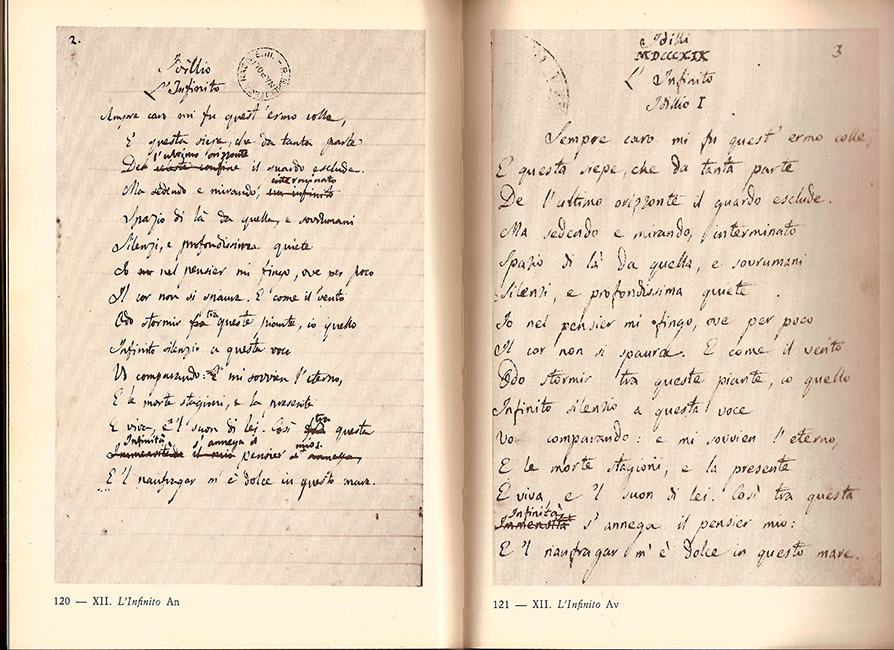 2.
Idillio
L'Infinito
Sempre caro mi fu quest'ermo colle,
E questa siepe, che da tanta parte
l'ultimo orizzonte
De confine il guardo esclude.
interminato
Ma sedendo e mirando, un infinito
Spazio di là da quella, e sovrumani
Silenzi, e profondissima quiete
Io nel pensier mi fingo, ove per poco
Il cor non si spaura. E come il vento
tra
Odo stormir fra queste piante, io quello
Infinito silenzio a questa voce
Vo comparando: E mi sovvien l'eterno,
E le morte stagioni, e la presente
tra
E viva, e 'l suon di lei. Così fra questa
Infinità s' annega il mio:
Immensitade il mio pensier s' annega,
E 'l naufragar m'è dolce in questo mare.
120 — XII. L'Infinito An
3
Idilli
MDCCCXIX
L'Infinito
Idillio I
Sempre caro mi fu quest' ermo colle,
E questa siepe, che da tanta parte
De l'ultimo orizzonte il guardo esclude.
Ma sedendo e mirando, interminato
Spazio di là da quella, e sovrumani
Silenzi, e profondissima quiete
Io nel pensier mi fingo, ove per poco
Il cor non si spaura. E come il vento
Odo stormir tra queste piante, io quello
Infinito silenzio a questa voce
Vo comparando: e mi sovvien l'eterno,
E le morte stagioni, e la presente
E viva e 'l suon di lei. Così tra questa
Infinità
Immensità s'annega il pensier mio:
E 'l naufragar m'è dolce in questo mare.
121 — XII. L'Infinito Av